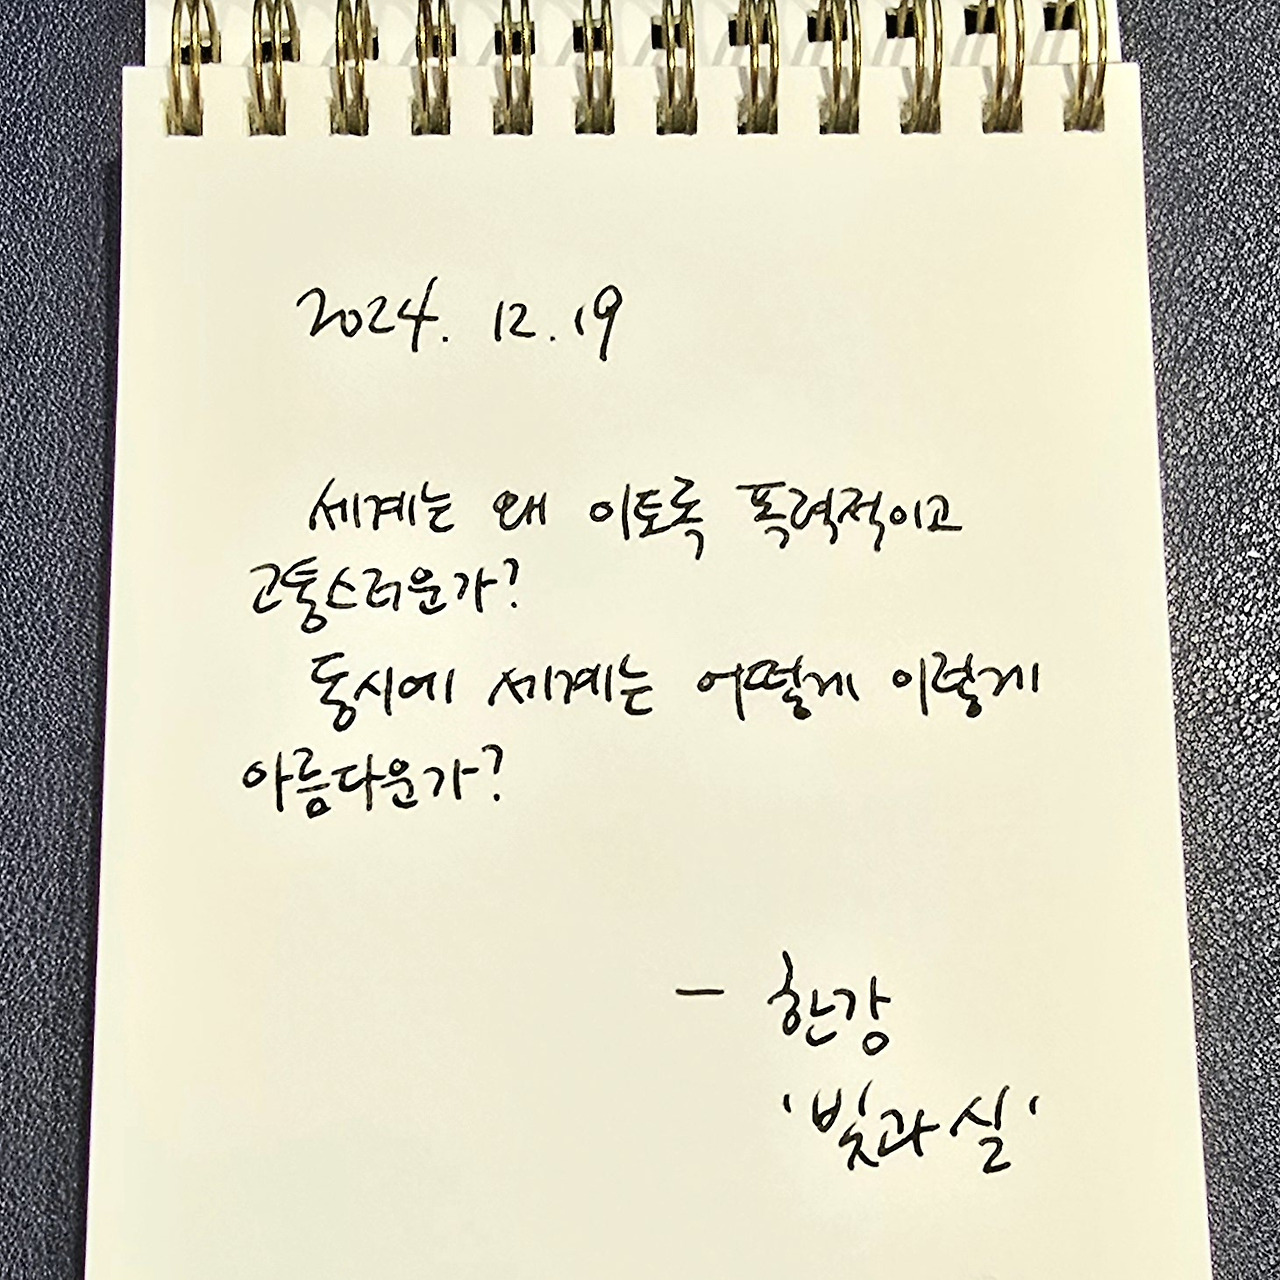 2024. 12. 19
세계는 왜 이토록 폭력적이고
고통스러운가?
동시에 세계는 어떻게 이렇게
아름다운가?
- 한강
'빛과 실'